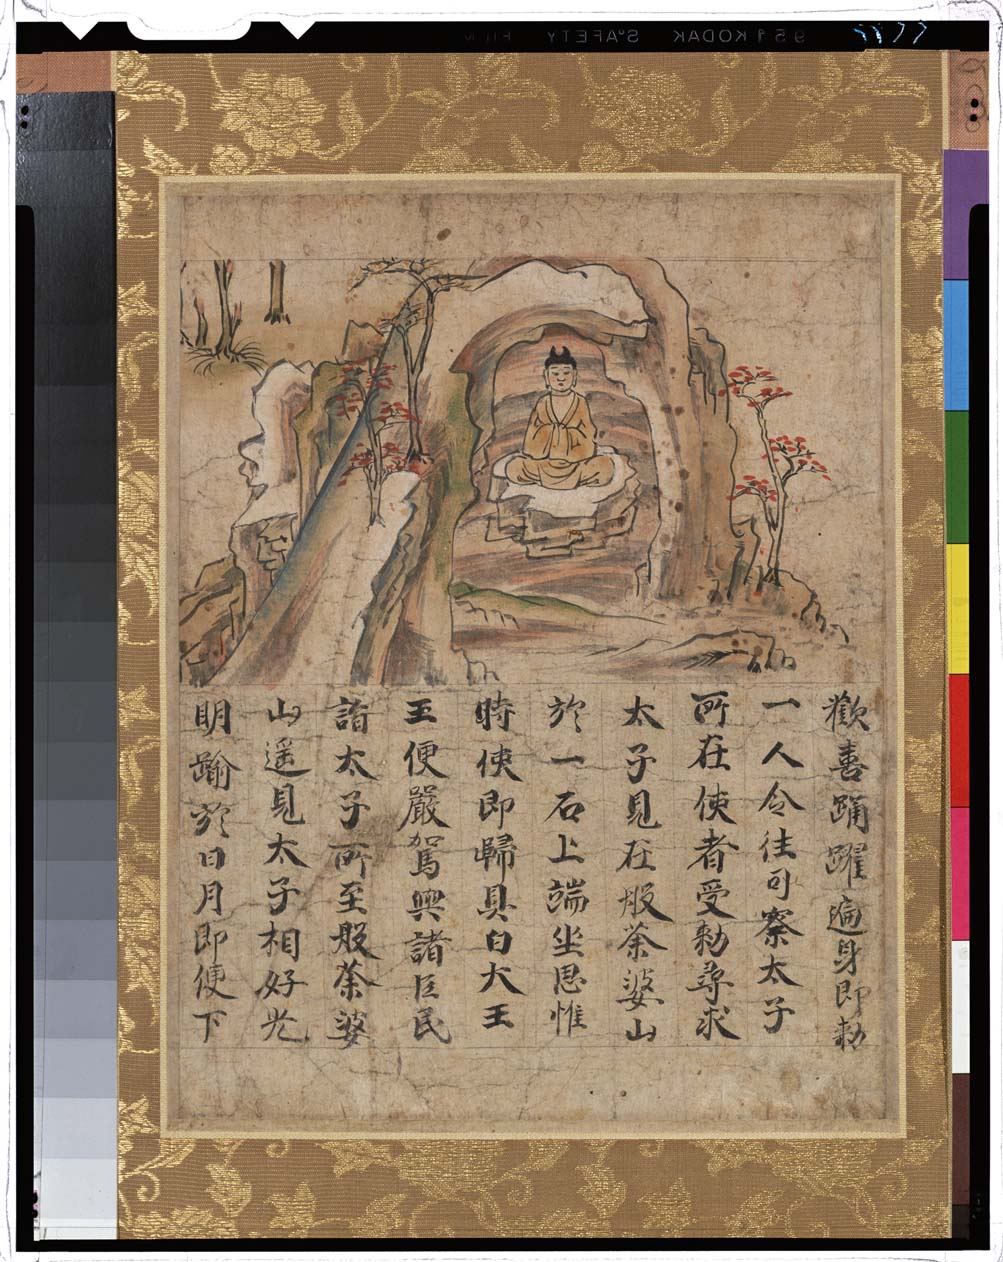 歡喜踊躍遍身即勅
一人令往可察太子
所在使者受勅尋求
太子見在般荼婆山
於一石上端坐思惟
時使即歸具白大王
王便嚴駕與諸臣民
詣太子所至般荼婆
山遥見太子相好光
明踰於日月即便下
KODAK SAFETY FILM